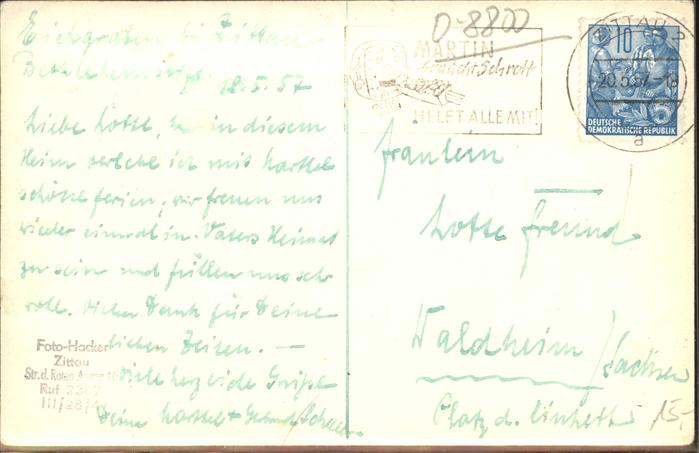 Eichgraben bei Zittau
Bethlehemstift 18.5.57
Liebe Lotte, in diesem
Heim verlebe ich mit
schöne Ferien, wir freuen uns
wieder einmal in Vaters Heimat
zu sein und fühlen uns sehr
wohl. Vielen Dank für Deine
lieben Zeilen. —
Viele herzliche Grüße
Deine
Foto-Hacker
Zittau
Str. d. Roten Armee
Ruf 2387
III/28/4
D-8800
MARTIN
braucht Schrott
HELFT ALLE MIT!
ZITTAU 2
20.5.57
a
10
DEUTSCHE
DEMOKRATISCHE REPUBLIK
Fräulein
Lotte Freund
Waldheim / Sachsen
Platz d. Einheit
15,-